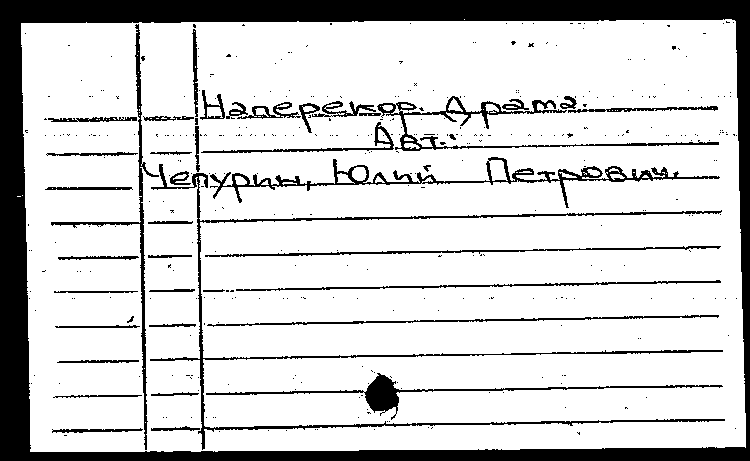 Наперекор. Драма.
Авт.:
Чепурин, Юлий Петрович.